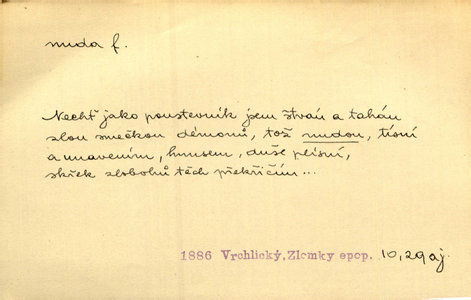 nuda f.
Nechť jako poustevník jsem štván a tahán
zlou smečkou démonů, tož nudou, tísní
a unavením, hnusem, duše plísní,
skřek zlobohů těch překřičím...
1886 Vrchlický, Zlomky epop. 10,29aj.